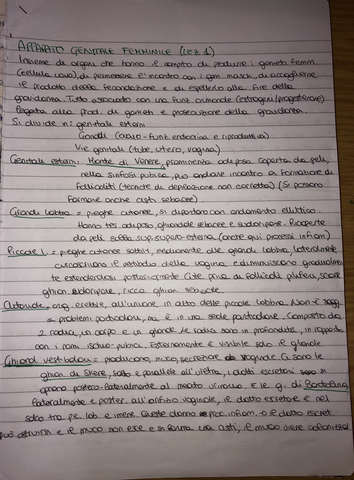 APPARATO GENITALE FEMMINILE (LEZ 1)
Insieme di organi che hanno il compito di produrre i gameti femm
(cellula uovo), di permettere l'incontro con i gam. masch., di accogliere
il prodotto della fecondazione e di espellerlo alla fine della
gravidanza. Tutto associato con una funz ormonale (estrogeni/progesterone)
legata alla prod. di gameti e prosecuzione della gravidanza.
Si divide in: genitali esterni
Gonadi (ovaio - funz endocrina e riproduttiva)
Vie genitali (tube, utero, vagina)
Genitali esterni: Monte di Venere, prominenza adiposa coperta da peli,
nella sinfisi pubica, può andare incontro a formazione di
follicoliti (tecniche di depilazione non corretta) (Si possono
formare anche cisti sebacee)
Grandi labbra = pieghe cutanee, si dipartono con andamento ellittico.
Hanno tes. adiposo, ghiandole sebacee e sudoripare. Ricoperte
da peli sulla sup. supero-esterna (anche qui processi infiam)
Piccole l. = pieghe cutanee sottili, medialmente alle grandi labbra, lateralmente
circoscrivono il vestibolo della vagina e diminuiscono gradualmen
te estendendosi posteriormente. Cute priva di follicoli piliferi, scarse
ghian sudoripare, ricca ghian sebacee
Clitoride = org. erettile, all'unione in alto delle piccole labbra. Non è
problemi particolari, ma è in una sede particolare. Composto da
2 radici, un corpo e un glande. Le radici sono in profondità, in rapporto
con i rami ischio-pubica. Esternamente è visibile solo il glande
Ghiand. vestibolari = producono muco, secrezione vaginale. Ci sono le
ghian di Skene, sotto e parallele all'uretra, i dotti escretori si
aprono postero-lateralmente al meato urinario e le g. di Bartolino,
lateralmente e poster. all'orifizio vaginale, il dotto escretore è nel
solco tra pic. lab e imene. Queste danno infiam. o il dotto escret.
può ostruirsi e il muco non esce e si forma una cisti, il muco viene